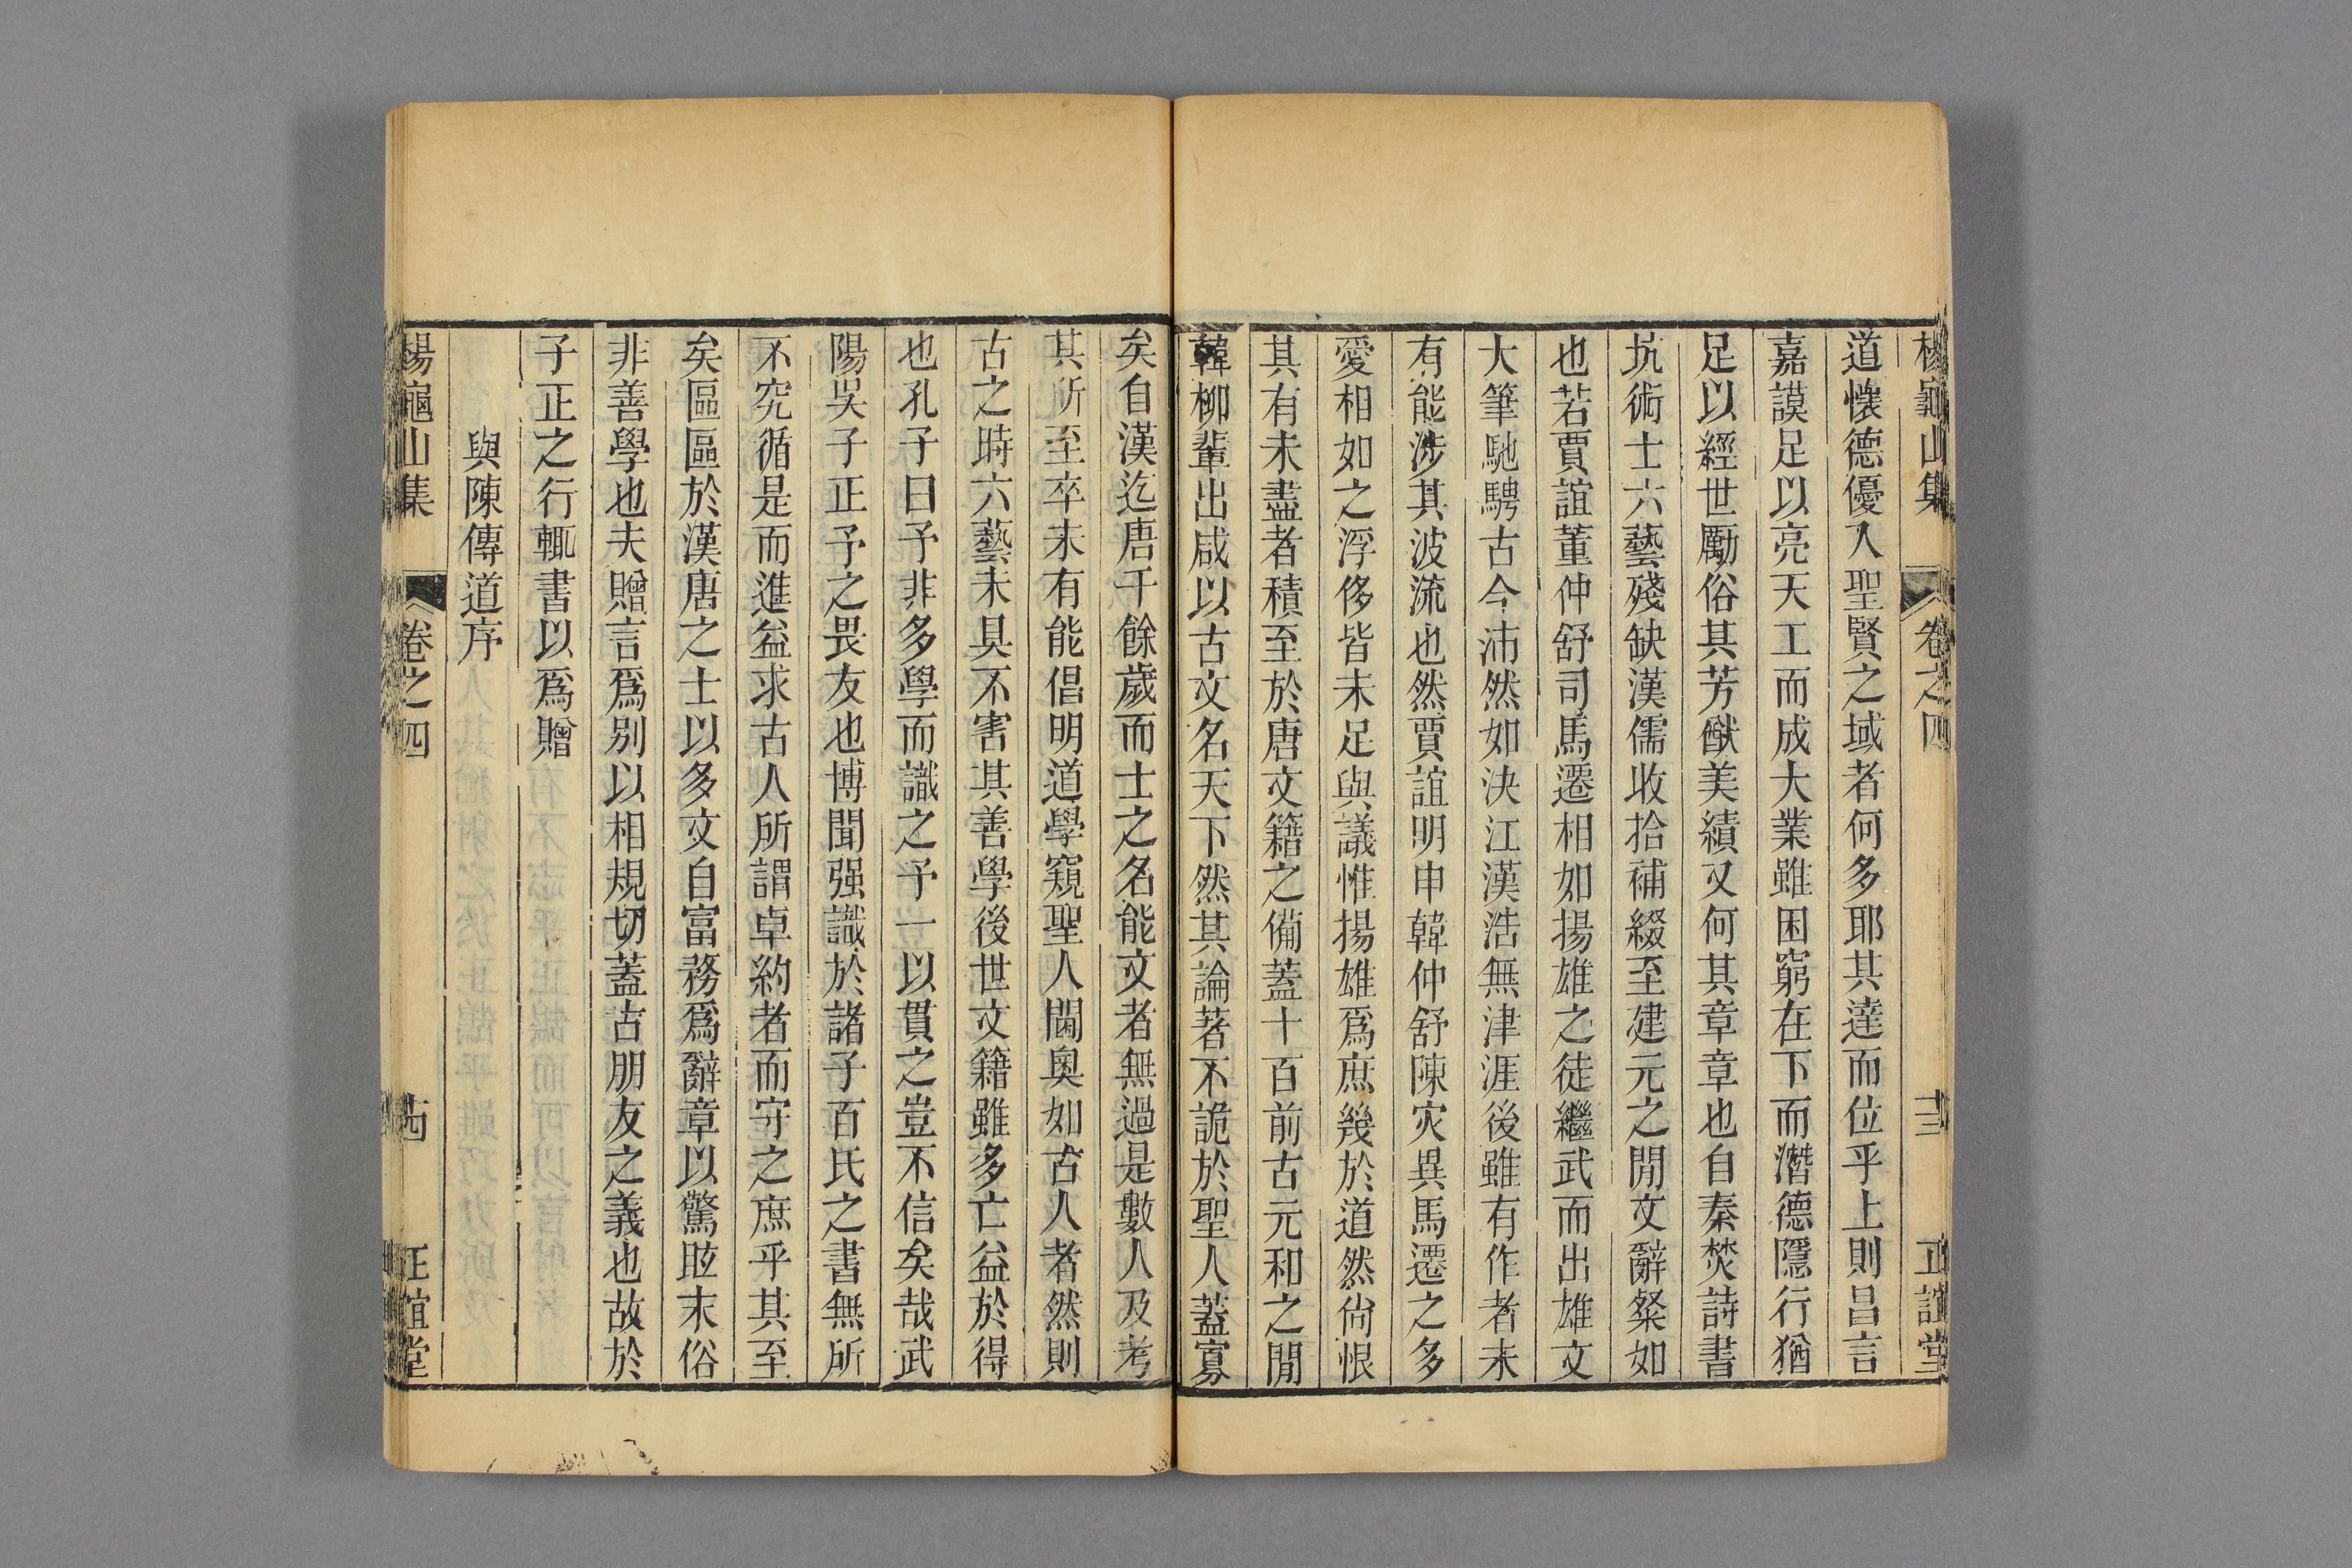 楊龜山集 卷之四 十三 正誼堂
道懷德優入聖賢之域者何多耶其達而位乎上則昌言
嘉謨足以亮天工而成大業雖困窮在下而潛德隱行猶
足以經世勵俗其芳猷美績又何其章章也自秦焚詩書
坑術士六藝殘缺漢儒收拾補綴至建元之閒文辭粲如
也若賈誼董仲舒司馬遷相如揚雄之徒繼武而出雄文
大筆馳騁古今沛然如決江漢浩無津涯後雖有作者未
有能涉其波流也然賈誼明申韓仲舒陳灾異馬遷之多
愛相如之浮侈皆未足與議惟揚雄爲庶幾於道然尚恨
其有未盡者積至於唐文籍之備蓋十百前古元和之閒
韓柳輩出咸以古文名天下然其論著不詭於聖人蓋寡
矣自漢迄唐千餘歲而士之名能文者無過是數人及考
其所至卒未有能倡明道學窺聖人閫奧如古人者然則
古之時六藝未具不害其善學後世文籍雖多亡益於得
也孔子曰予非多學而識之予一以貫之豈不信矣哉武
陽吳子正予之畏友也博聞强識於諸子百氏之書無所
不究循是而進益求古人所謂卓約者而守之庶乎其至
矣區區於漢唐之士以多文自富務爲辭章以驚眩末俗
非善學也夫贈言爲別以相規切蓋古朋友之義也故於
子正之行輒書以爲贈
與陳傳道序
楊龜山集 卷之四 十四 正誼堂